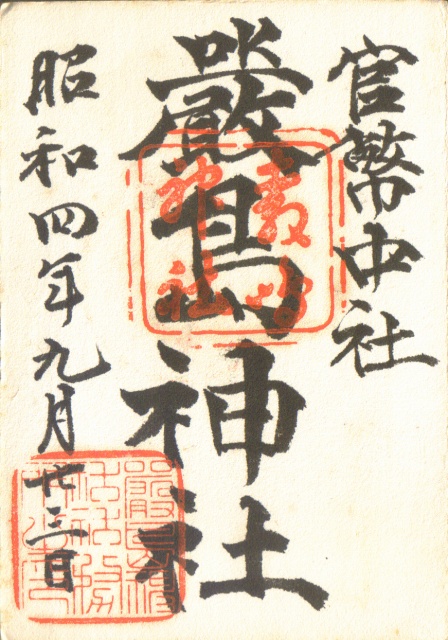 官幣中社
嚴島神社
昭和四年九月廿三日
嚴島
神社